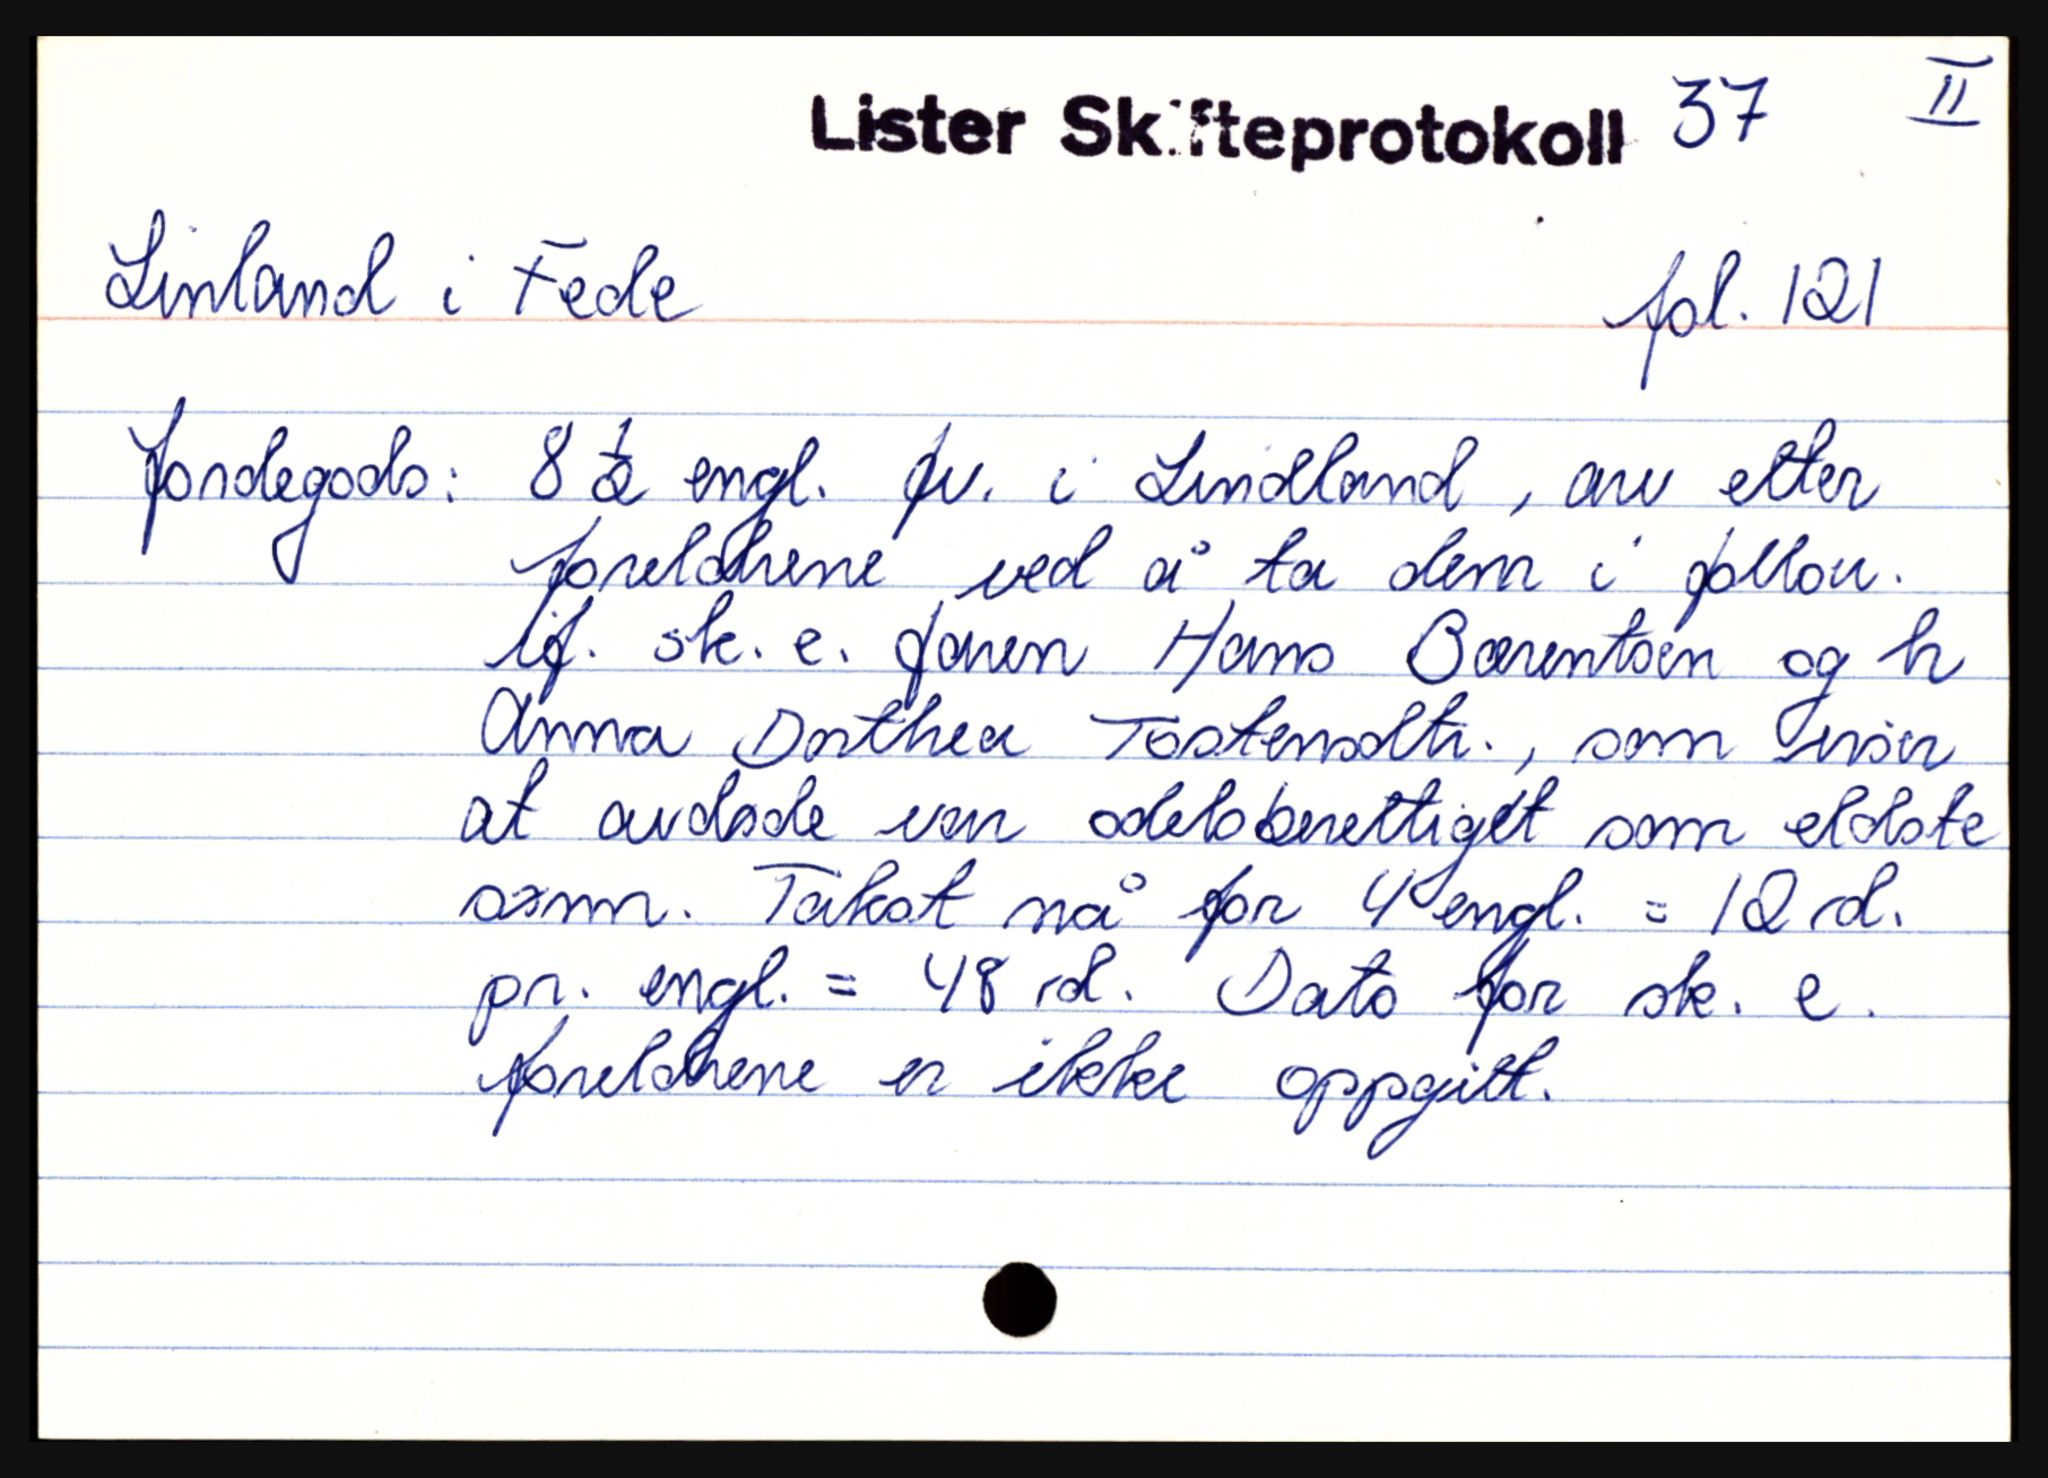 Lister Skifteprotokoll 37 II
Linland i Fede fol. 121
Jordegods: 8 1/2 engl. fv. i Lindland, arv etter
foreldrene ved å ta dem i follou.
lif. sk. e. faren Hans Bærentsen og h
Anna Dorthea Tostensdtr., som viser
at avdøde var odelsberettiget som eldste
sønn. Takst nå for 4 engl. = 12 rd.
pr. engl. = 48 rd. Dato for sk. e.
foreldrene er ikke oppgitt.